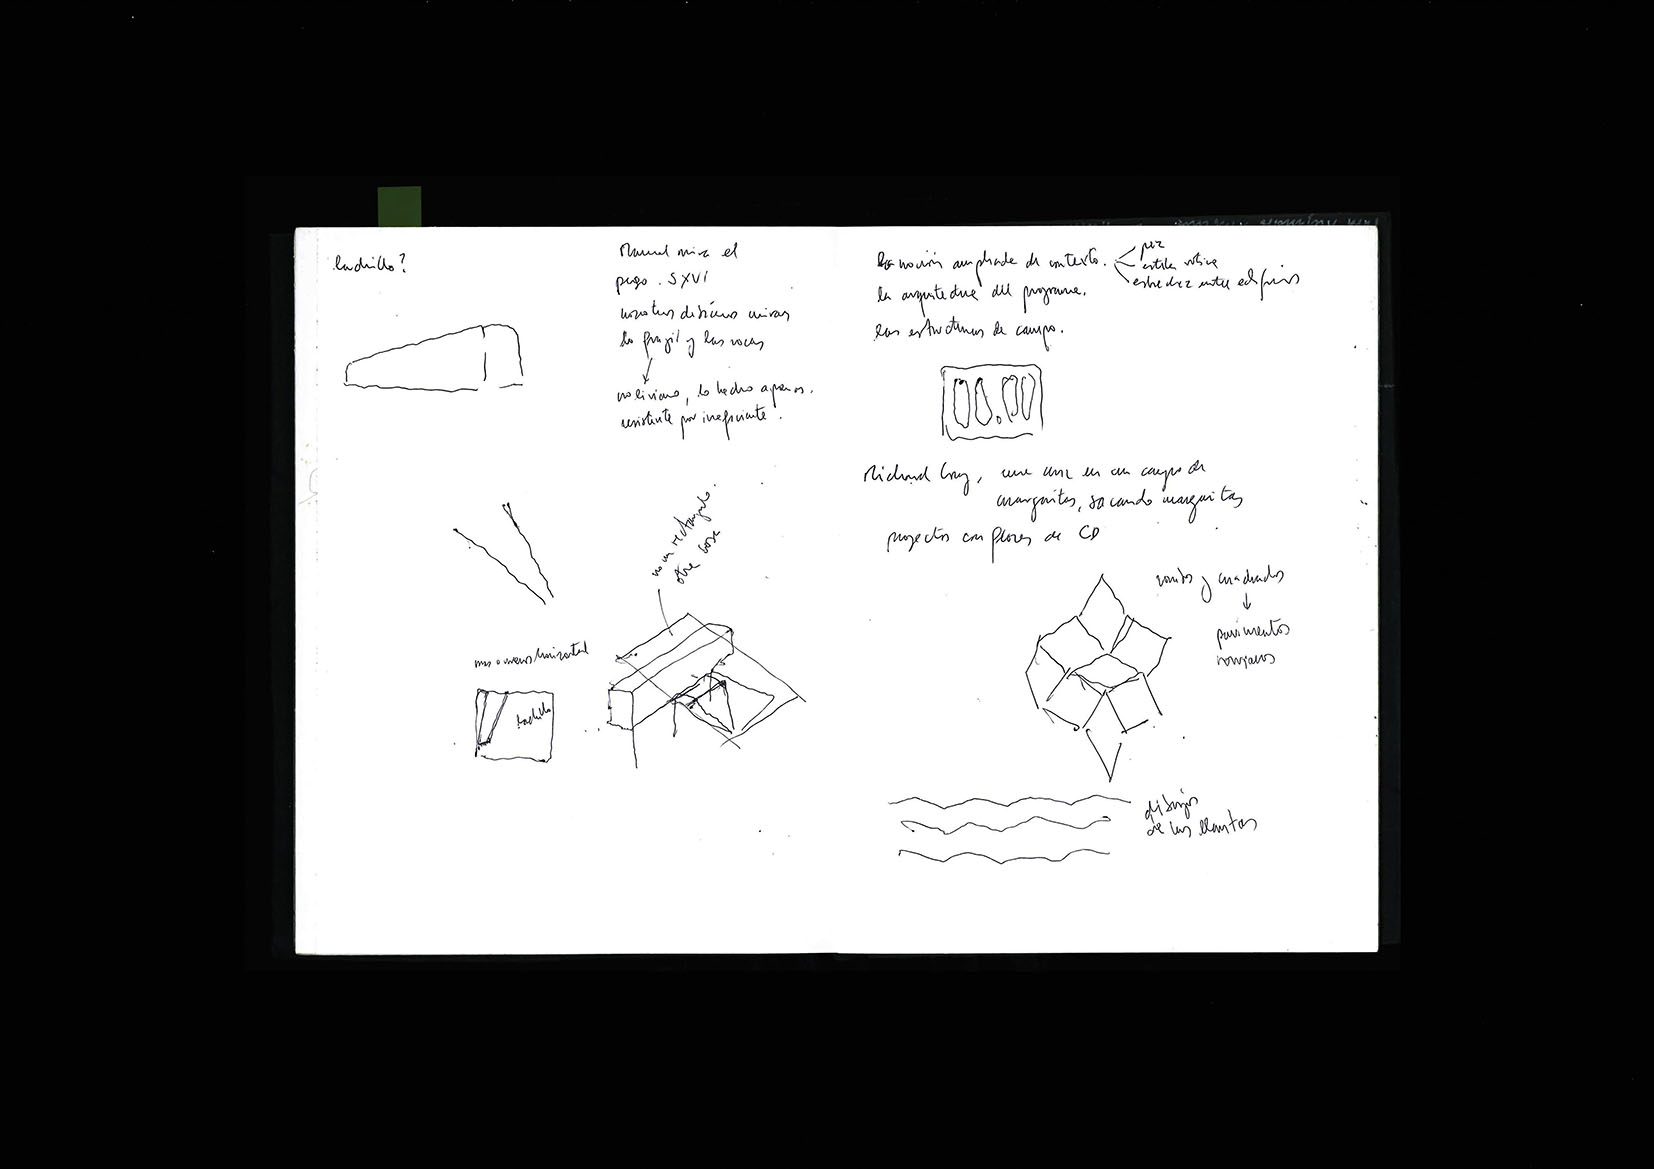 ladrillo?
Manuel mira el
pego. SXVI
nosotros debiéramos mirar
lo frágil y las rocas
no liviano, lo hecho apenas.
resistente por ineficiente.
no un rectángulo.
otra cosa
mas o menos horizontal
ladrillo
la noción ampliada de contexto.
pez
estrechez entre edificios
la arquitectura del programa.
las estructuras de campo.
00.00
Richard Long, una cruz en un campo de
margaritas, sacando margaritas
proyectos con flores de CD
rombos y cuadrados
pavimentos
romanos
dibujos
de las llantas